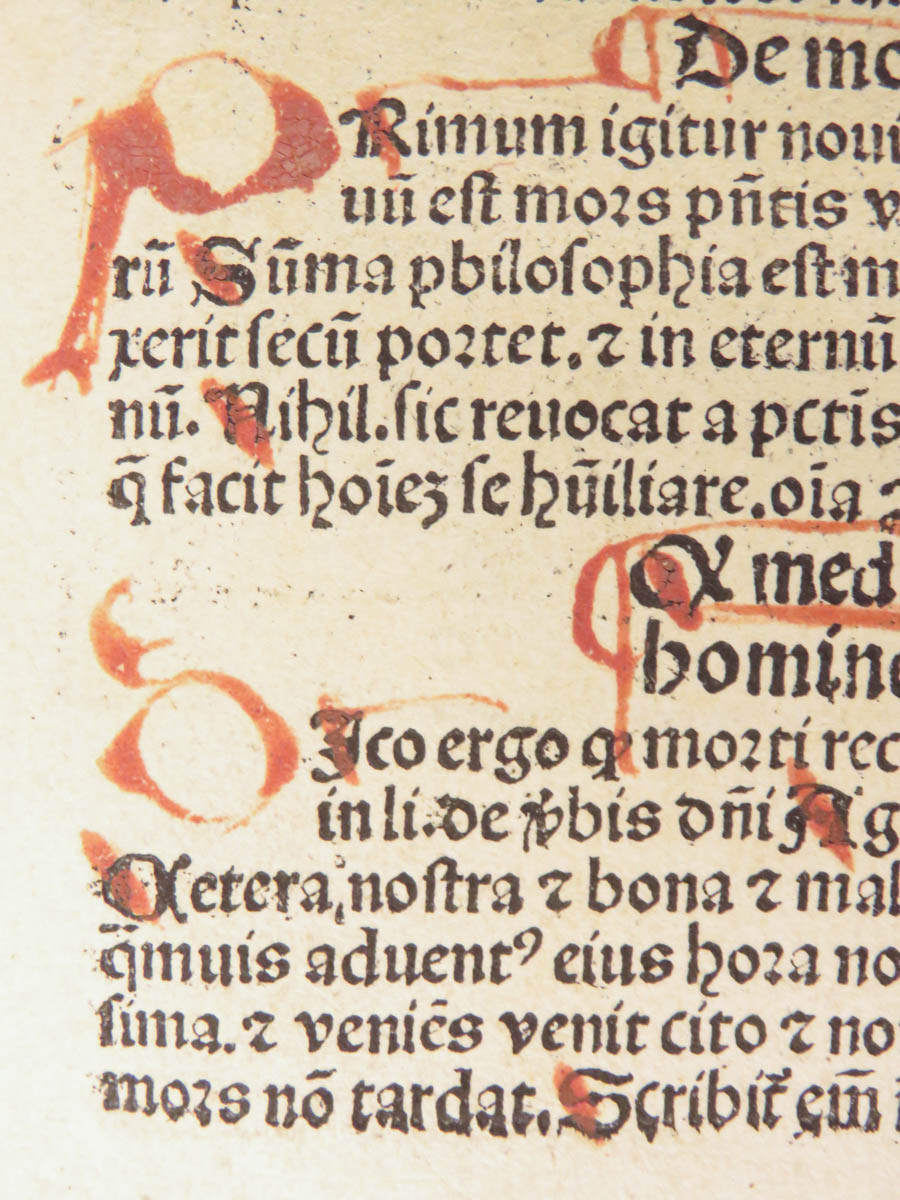 De mo
PRimum igitur noui
uū est mors pn̄tis v
rū Sūma philosophia est m
xerit secū portet. ⁊ in eternū
nū. Nihil. sic reuocat a pctīs
q̄ facit hoīez se hūiliare. oīa
Ex med
homine
DIco ergo ꝙ morti rec
in li. de v̄bis dn̄i Aug
Cetera nostra ⁊ bona ⁊ mal
q̄muis aduentꝰ eius hora no
sima. ⁊ veniēs venit cito ⁊ no
mors nō tardat. Scribit᷑ em̄